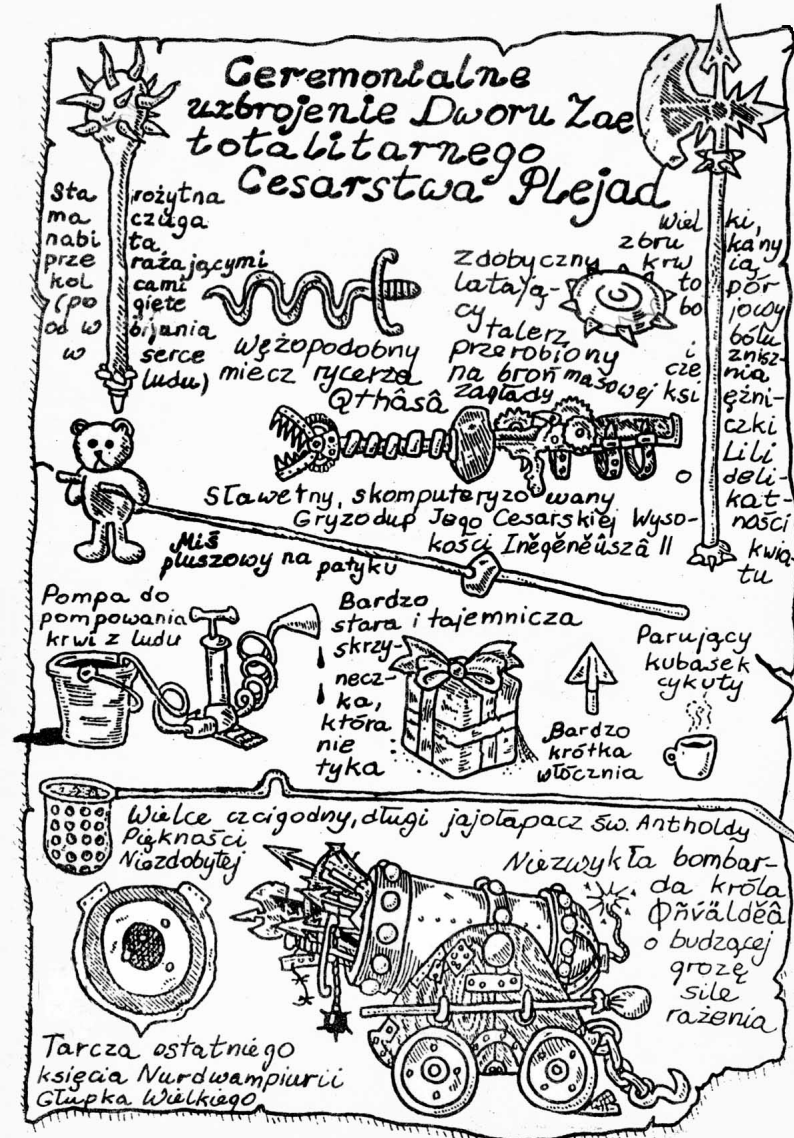 Ceremonialne
uzbrojenie Dworu Zae
totalitarnego
Cesarstwa Plejad
Sta rożytna
ma czuga
nabi ta
prze rażającymi
kol cami
(po gięte
od w bijania
w serce
ludu)
Wężopodobny
miecz rycerza
Qthâsâ
Zdobyczny
latają-
cy
talerz
przerobiony
na broń masowej
zagłady
Wiel ki,
zbru kany
krw ią
to pór
bo jowy
bólu
i znisz-
cze nia
ksi ężni-
czki
Lili
o deli-
kat-
ności
kwia-
tu
Sławetny, skomputeryzo wany
Gryzodup Jego Cesarskiej Wyso-
kości Iněgěněûszâ II
Miś
pluszowy na patyku
Pompa do
pompowania
krwi z ludu
Bardzo
stara i tajemnicza
skrzy-
necz-
ka,
która
nie
tyka
Bardzo
krótka
włócznia
Parujący
kubasek
cykuty
Wielce czcigodny, długi jajołapacz św. Antholdy
Piękności
Niezdobytej
Niezwykła bombar-
da króla
Φñvälděâ
o budzącej
grozę
sile
rażenia
Tarcza ostatniego
księcia Nurdwampiurii
Głupka Wielkiego